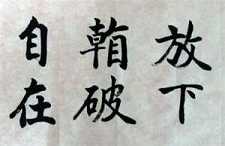 放下
破
自在